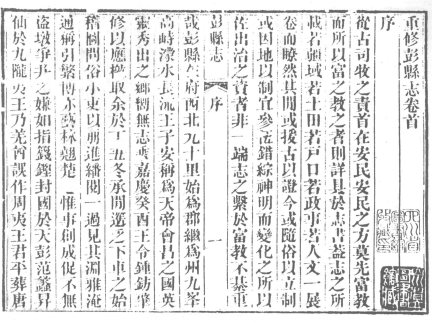 重修彭縣志卷首
序
從古司牧之責首在安民安民之方莫先富教
而所以富之教之者則詳具於志書蓋志之所
載若疆域若土田若戶口若政事若人文一展
卷而瞭然其間或援古以證今或隨俗以立制
或因地以制宜參伍錯綜神明而變化之所以
佐出治之資者非一端志之繫於富教不綦重
彭縣志
序
一
哉彭縣在府西北九十里始為郡繼為州九峯
高峙濛水長流王子安稱為天帝會昌之國英
靈秀出之鄉無志乘嘉慶癸酉王令鍾鈁肇
修以應檄取余於丁丑冬承之下車之始
稽圖問俗小吏以册進繙閱一過見其淵雅淹
通稱引繁博亦藝林翹楚惟事創成促不無
盜墩爭之嫌如指錢鏗封國於天彭范蠡昇
仙於九隴夷王乃羌酋誤作周夷王君平葬唐